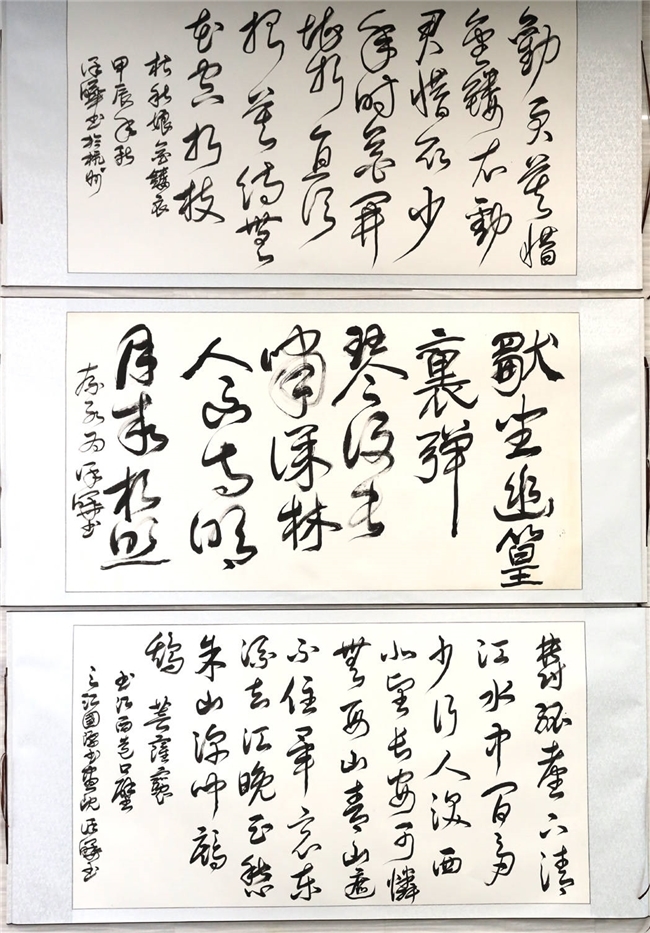 勸君莫惜
金縷衣勸
君惜取少
年時花開
堪折直須
折莫待無
花空折枝
杜秋娘金縷衣
甲辰年秋
書於杭州
獨坐幽篁
裏彈
琴復長
嘯深林
人不知明
月來相照
書
鬱孤臺下清
江水中間多
少行人淚西
北望長安可憐
無數山青山遮
不住畢竟東
流去江晚正愁
余山深聞鷓
鴣 菩薩蠻
書江西造口壁
之江國際書畫院 書